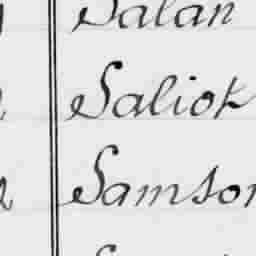 Salan
Saliot
Samson